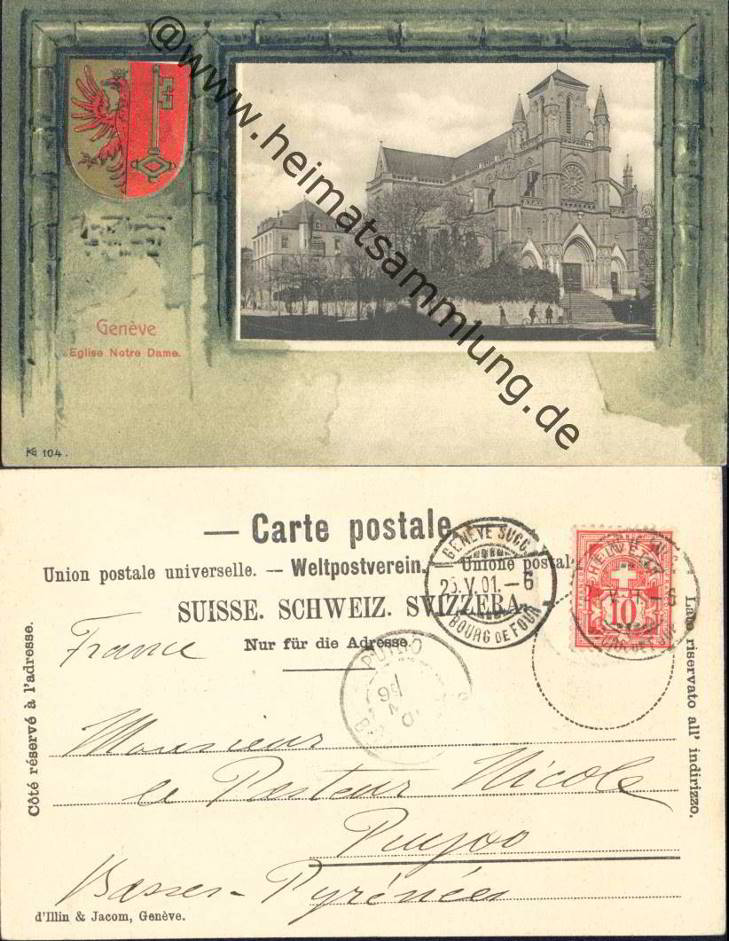 @www.heimatsammlung.de
Genève
Eglise Notre Dame.
104.
— Carte postale.
Union postale universelle. — Weltpostverein. — Unione postale
SUISSE. SCHWEIZ. SVIZZERA.
Nur für die Adresse.
GENÈVE SUCC.
25.V.01.–6
BOURG DE FOUR
10
Côté réservé à l'adresse.
Lato riservato all' indirizzo.
France
Monsieur
le Pasteur Nicole
Puyoo
Basses-Pyrénées
d'Illin & Jacom, Genève.